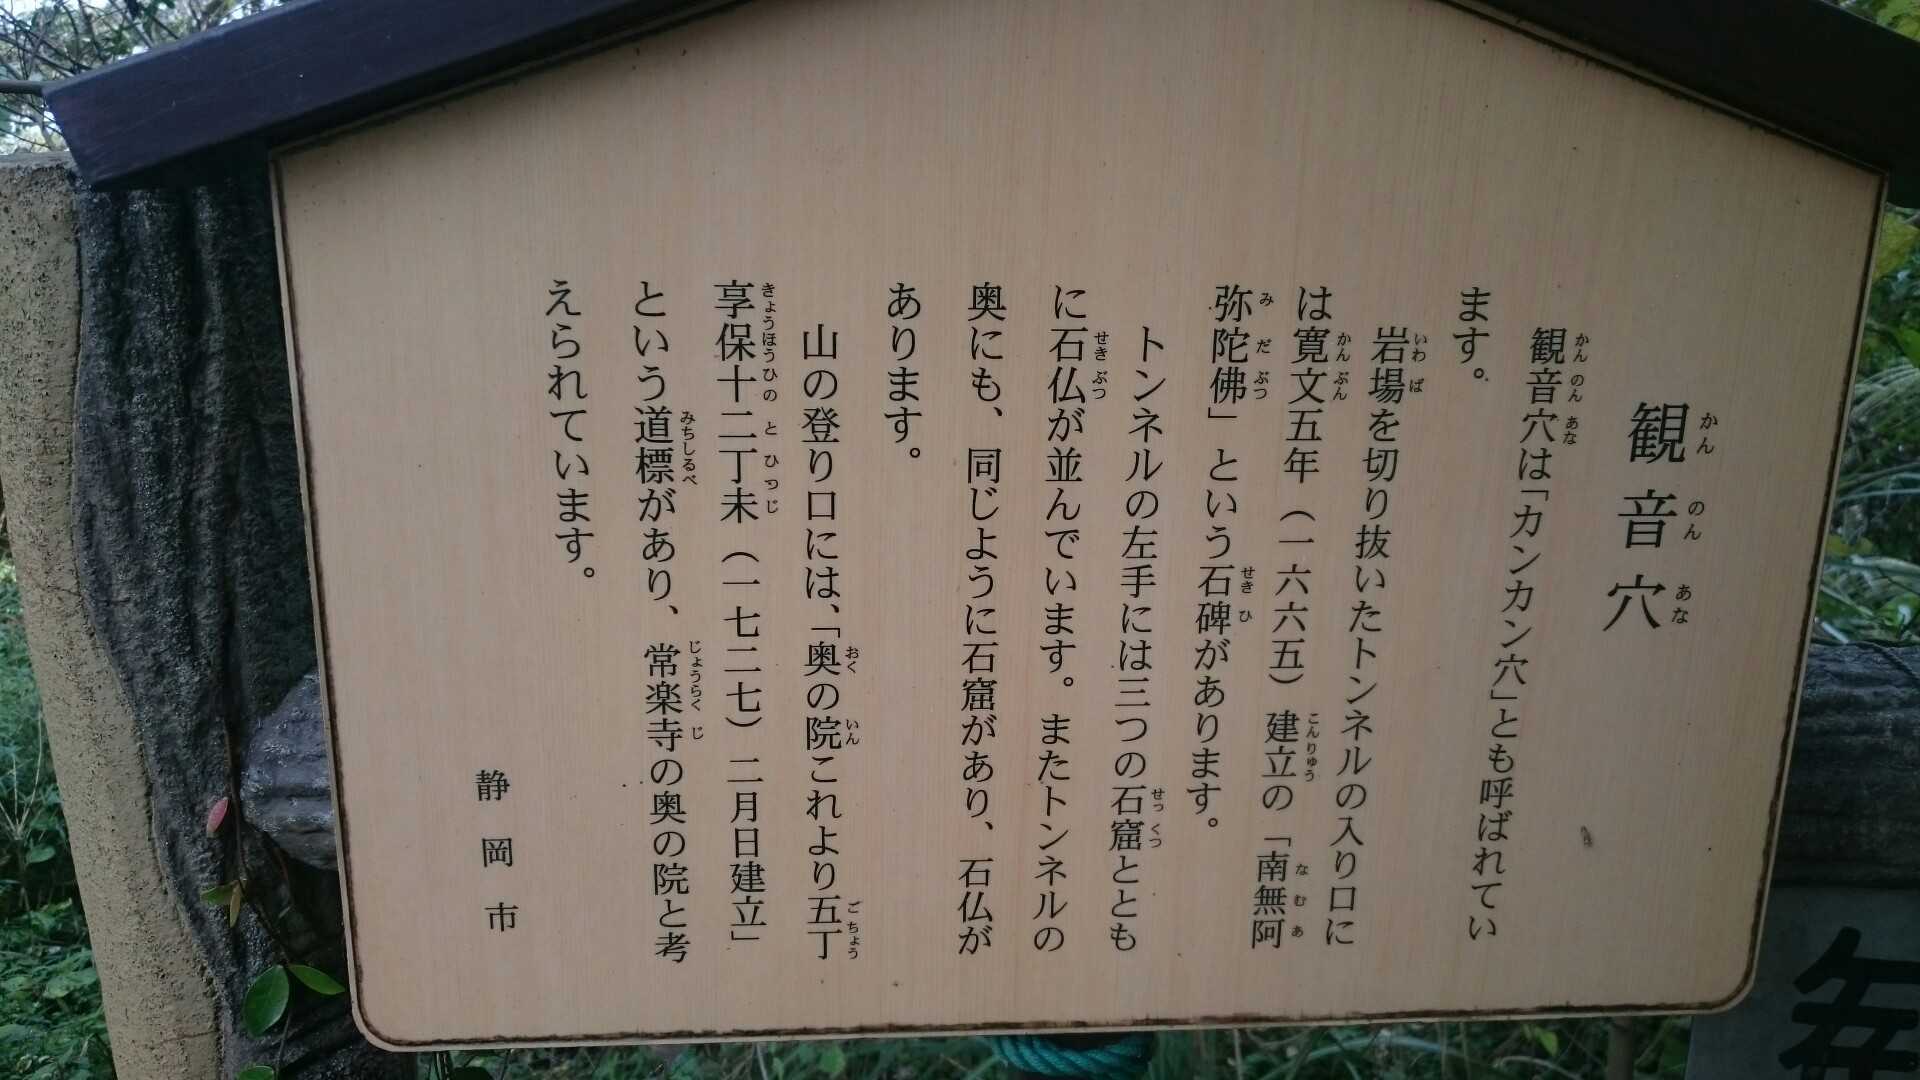 観音穴
観音穴は「カンカン穴」とも呼ばれてい
ます。
岩場を切り抜いたトンネルの入り口に
は寛文五年（一六六五）建立の「南無阿
弥陀佛」という石碑があります。
トンネルの左手には三つの石窟ととも
に石仏が並んでいます。またトンネルの
奥にも、同じように石窟があり、石仏が
あります。
山の登り口には、「奥の院これより五丁
享保十二丁未（一七二七）二月日建立」
という道標があり、常楽寺の奥の院と考
えられています。
静岡市